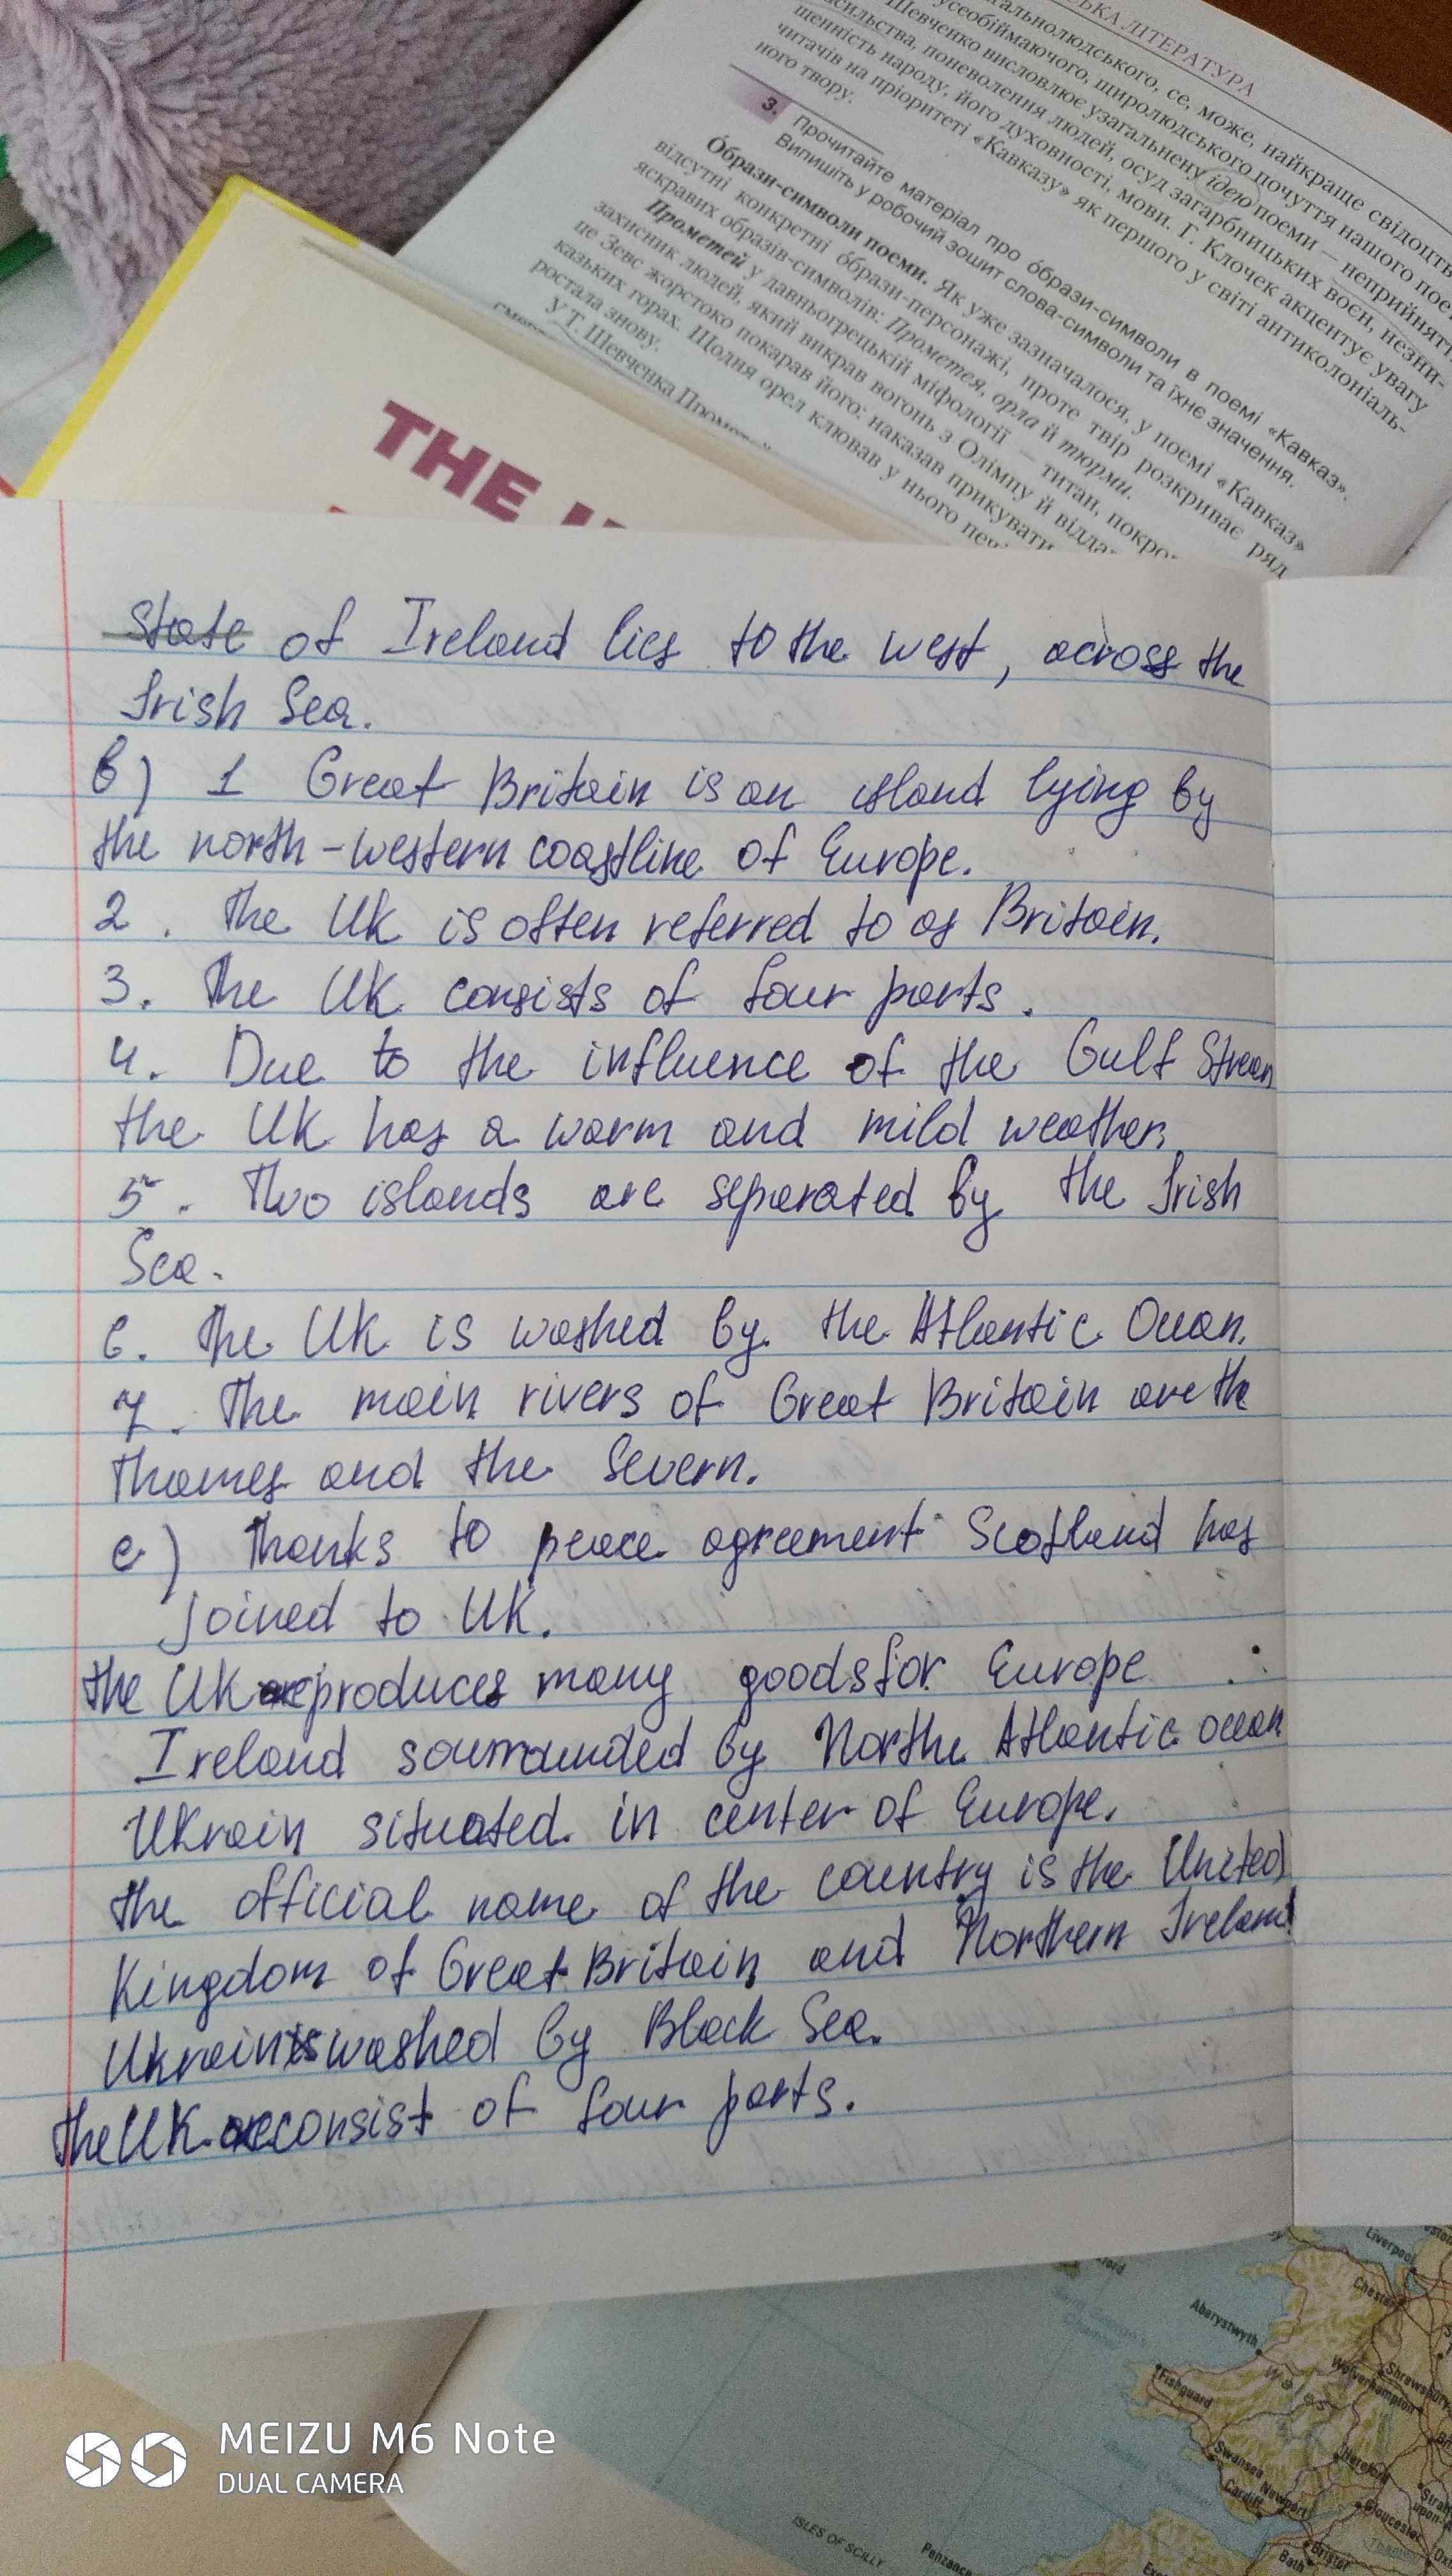 СЬКА ЛІТЕРАТУРА
гальнолюдського, се, може, найкраще свідоцтв
усеобіймаючого, щиролюдського почуття нашого пое
Шевченко висловлює узагальнену ідею поеми — неприйнятт
сильства, поневолення людей, осуд загарбницьких воєн, незни-
щенність народу, його духовності, мови. Г. Клочек акцентує увагу
читачів на пріоритеті «Кавказу» як першого у світі антиколоніаль-
ного твору.
3. Прочитайте матеріал про образи-символи в поемі «Кавказ».
Випишіть у робочий зошит слова-символи та їхнє значення.
Образи-символи поеми. Як уже зазначалося, у поемі «Кавказ»
відсутні конкретні образи-персонажі, проте твір розкриває ряд
яскравих образів-символів: Прометея, орла й тюрми.
Прометей у давньогрецькій міфології — титан, покро
захисник людей, який викрав вогонь з Олімпу й відда
це Зевс жорстоко покарав його: наказав прикувати
казьких горах. Щодня орел клював у нього печі
ростала знову.
У Т. Шевченка Промет
THE
State of Ireland lies to the west, across the
Irish Sea.
b) 1 Great Britain is an island lying by
the north-western coastline of Europe.
2. The UK is often referred to as Britain.
3. The UK consists of four parts.
4. Due to the influence of the Gulf Stream
the UK has a warm and mild weather.
5. Two islands are separated by the Irish
Sea.
6. The UK is washed by the Atlantic Ocean.
7. The main rivers of Great Britain are the
Thames and the Severn.
c) Thanks to peace agreement Scotland has
joined to UK.
the UK produces many goods for Europe
Ireland surrounded by Northe Atlantic ocean
Ukrain situated in center of Europe.
the official name of the country is the United
Kingdom of Great Britain and Northern Ireland
Ukrain is washed by Black Sea.
the UK consist of four parts.
Liverpool
Chester
Aberystwyth
Shrewsbury
Wolverhampton
Fishguard
WALES
Swansea
Hereford
Cardiff
Newport
Gloucester
Bristol
Bath
ISLES OF SCILLY
Penzance
MEIZU M6 Note
DUAL CAMERA